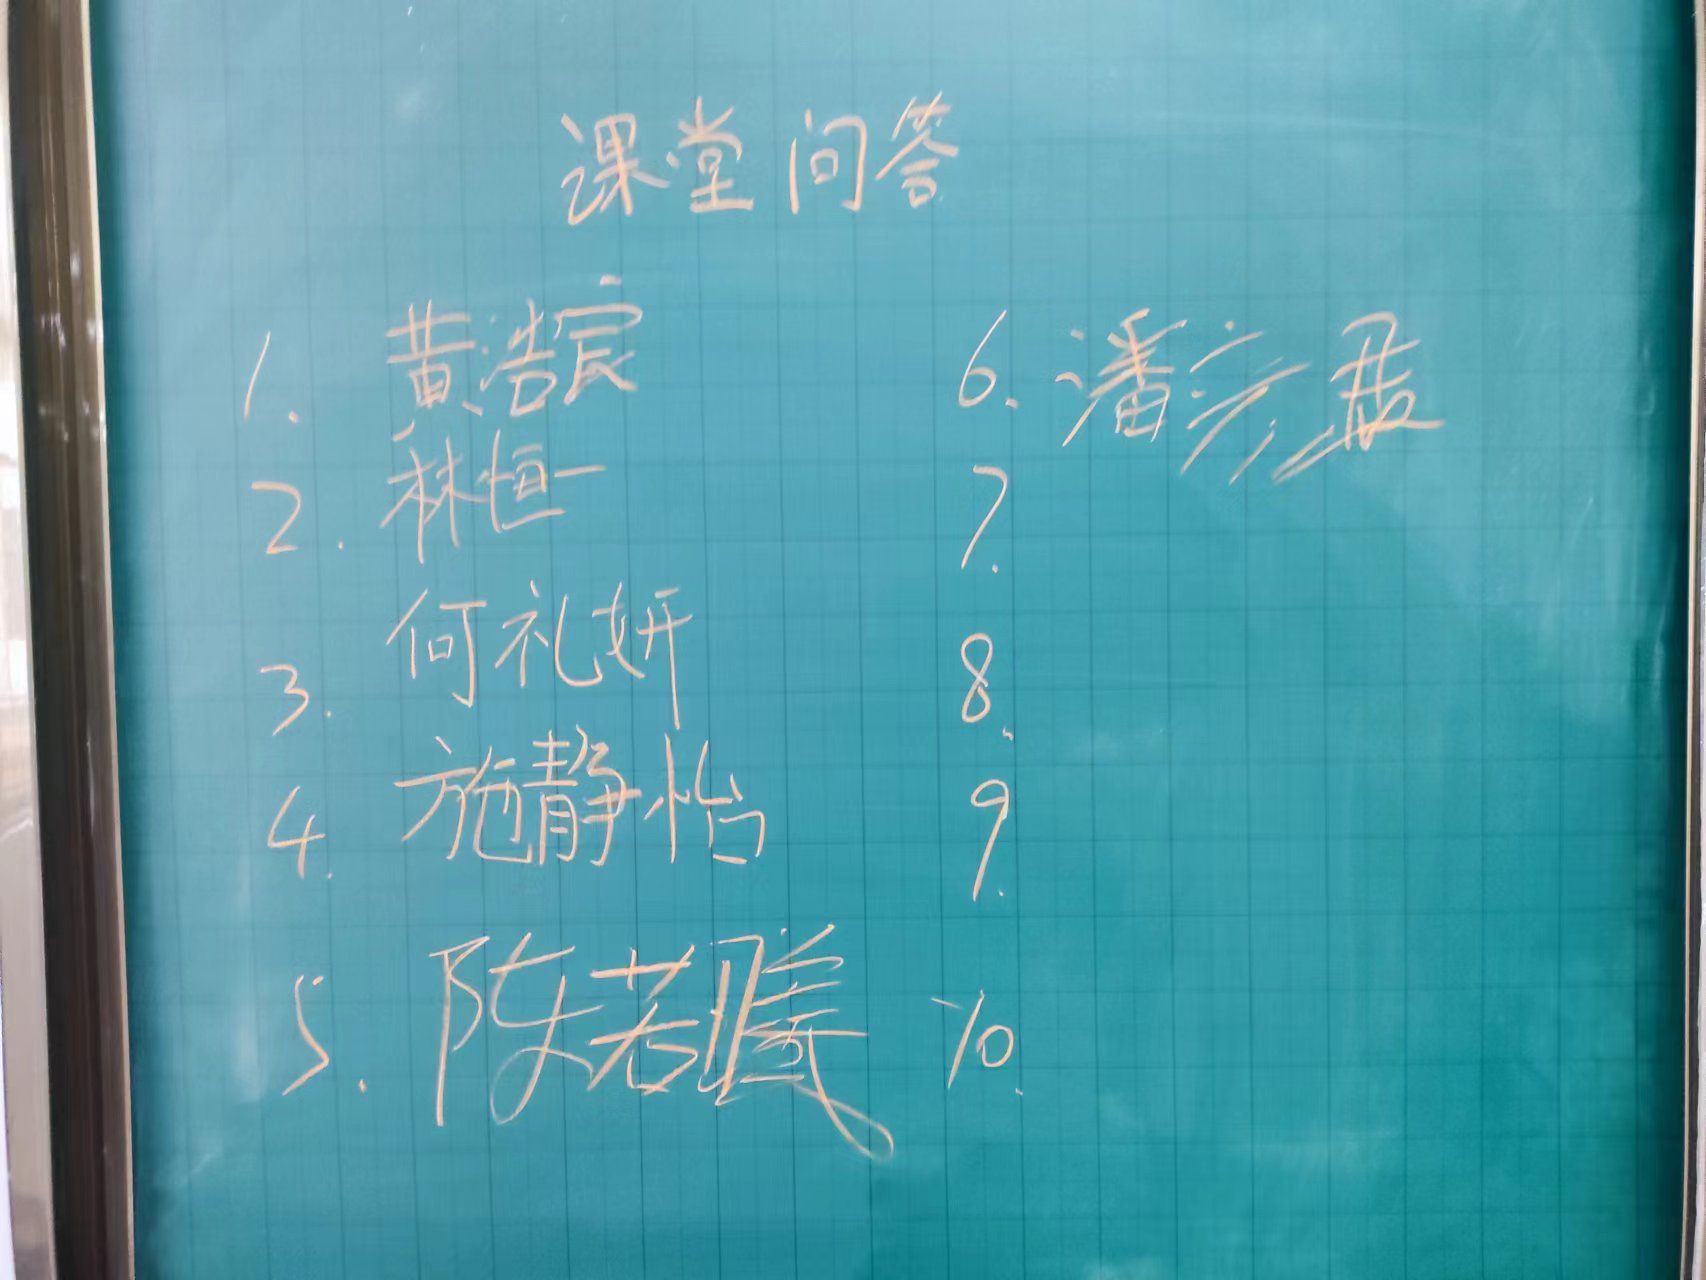 课堂问答
1. 黄浩宸
2. 林恒一
3. 何礼妍
4. 施静怡
5. 陈若曦
6. 潘彦
7.
8.
9.
10.